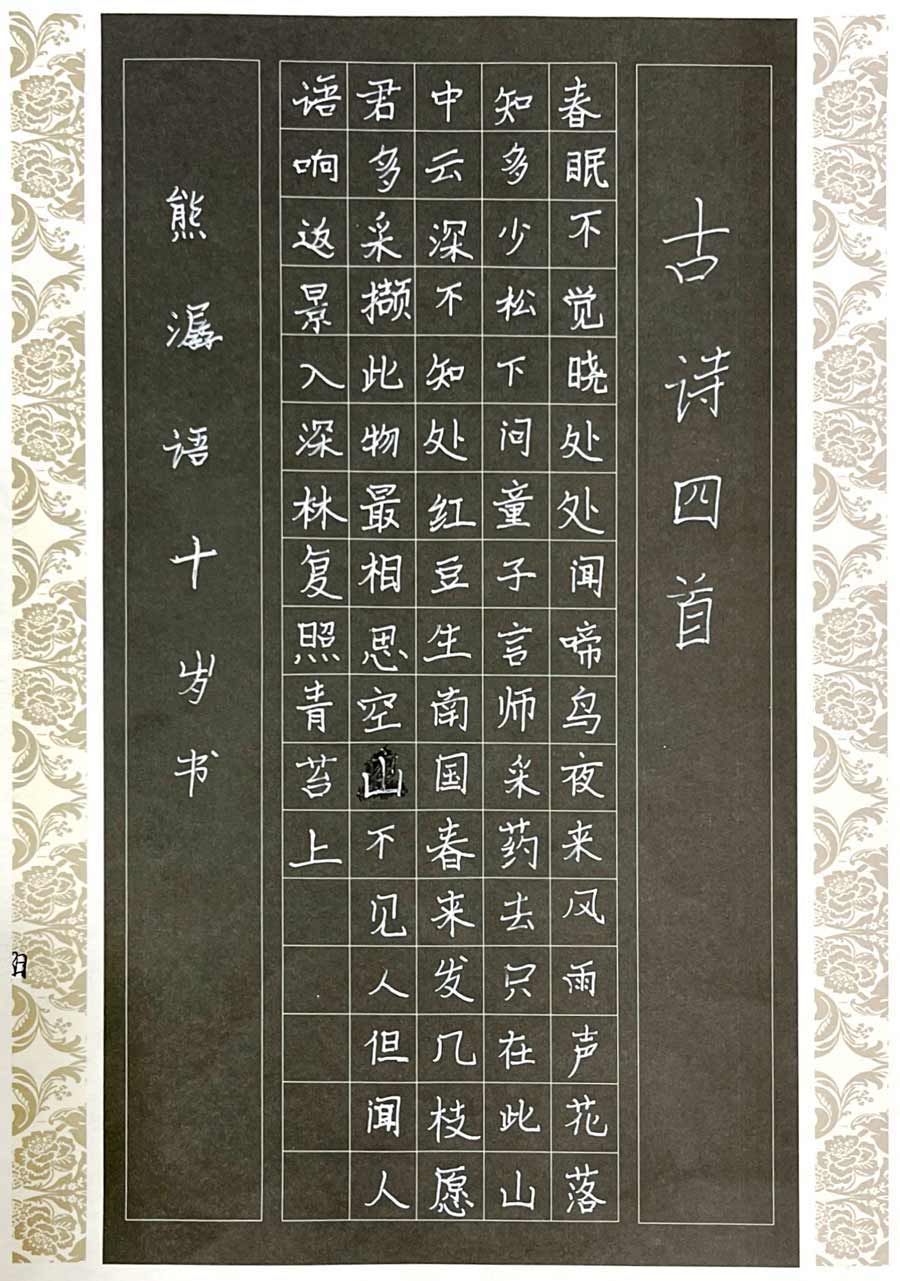 古诗四首
春眠不觉晓处处闻啼鸟夜来风雨声花落
知多少松下问童子言师采药去只在此山
中云深不知处红豆生南国春来发几枝愿
君多采撷此物最相思空山不见人但闻人
语响返景入深林复照青苔上
熊潺语十岁书